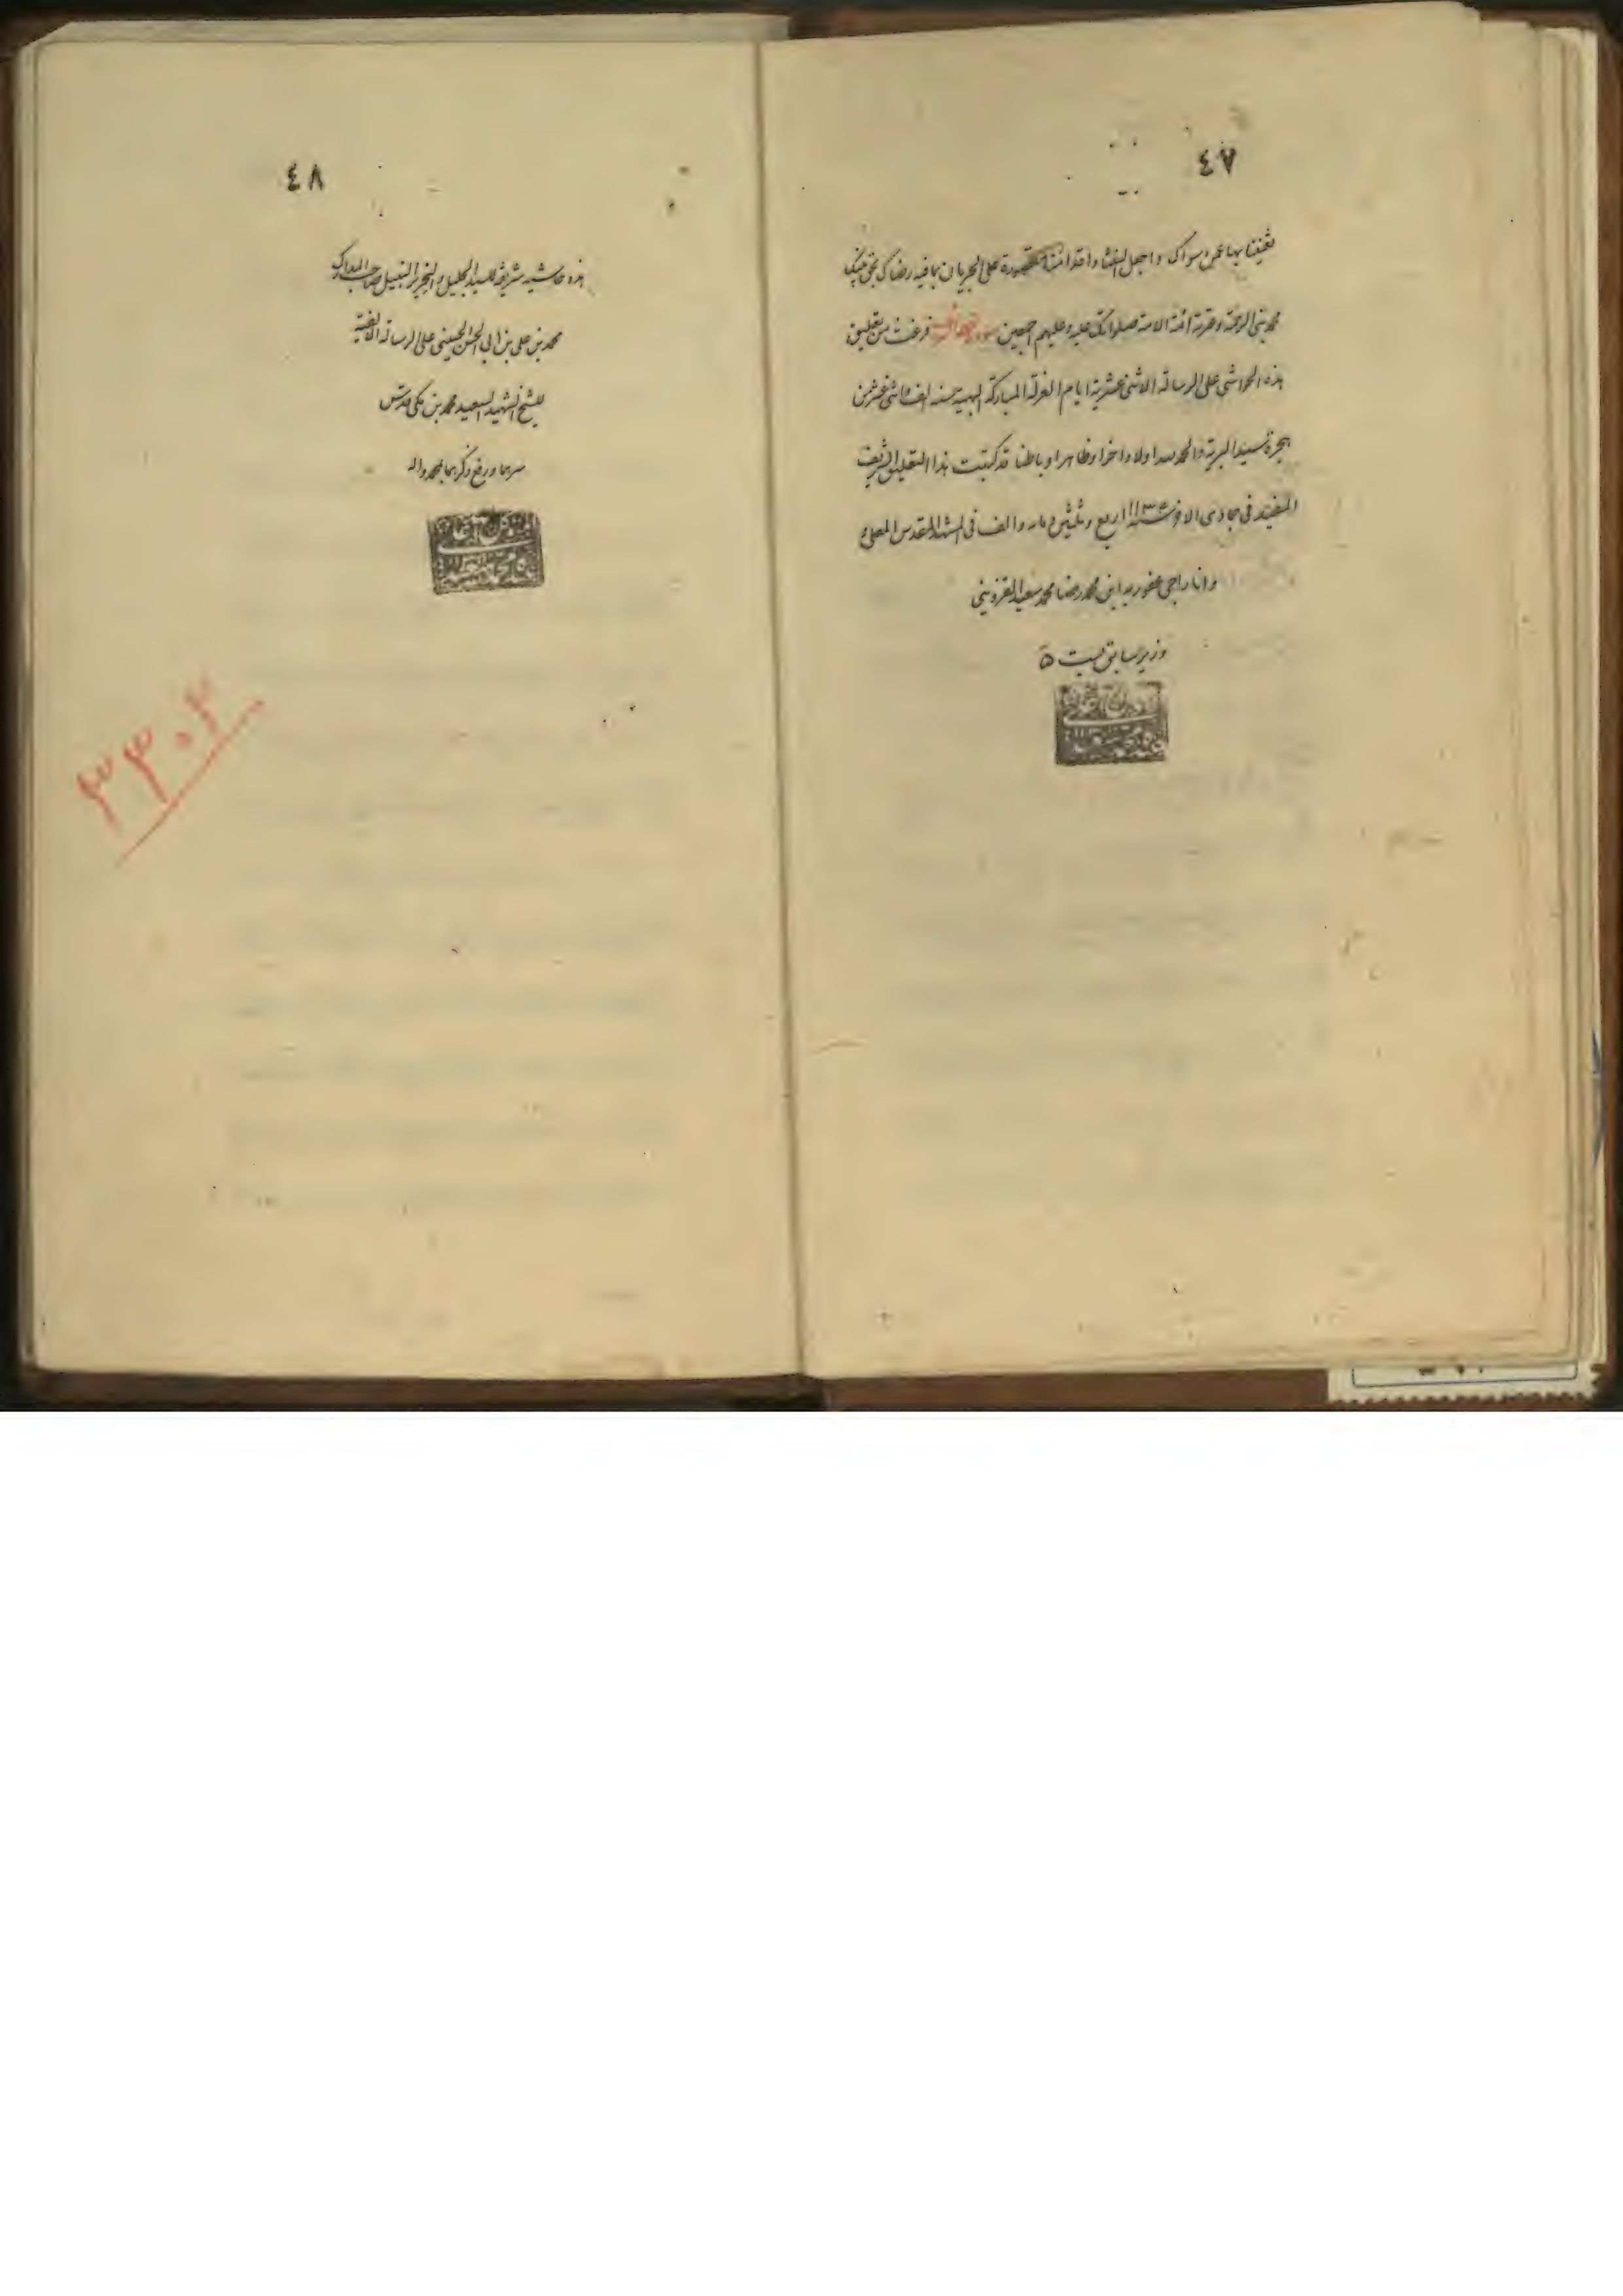 ٤٧
تغنينا بها عمن سواك واجعل انفسنا واقدامنا مقصورة على الجريان بما فيه رضاك بحق نبيك
محمد نبي الرحمة وعترته ائمة الامة صلواتك عليه وعليهم اجمعين فرغت من تعليق
هذه الحواشي على الرسالة الاثنى عشرية ايام الغرقة المباركة البهية سنه الف واثنى عشر من
هجرة سيد البرية والحمد لله اولا واخرا وظاهرا وباطنا قد كتبت هذا التعليق الشريف
المفيد في جمادى الاخر سنة اربع وثلثين ومايه والف في المشهد المقدس المعلى
وانا راجى عفو ربه ابن محمد رضا محمد سعيد القزوينى
وزير سابق
٤٨
هذه حاشيه شريفة للسيد الجليل والنحرير النبيل صاحب المدارك
محمد بن على بن ابى الحسن الحسينى على الرسالة الالفية
للشيخ الشهيد السعيد محمد بن مكى قدس
سرهما ورفع ذكرهما بمحمد واله
٢٣٠٢